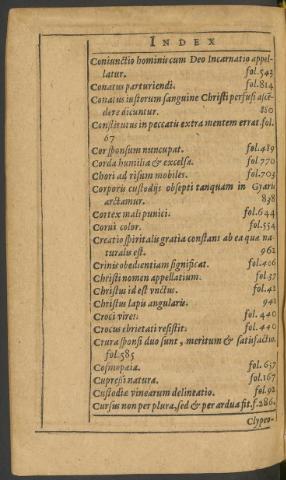 INDEX
Coniunctio hominis cum Deo Incarnatio appel-
latur. fol.543
Conatus parturiendi. fol.814
Conatus iustorum sanguine Christi perfusi ascē-
dere dicuntur. 880
Constitutus in peccatis extra mentem errat.fol.
67
Cor sponsum nuncupat. fol.419
Corda humilia & excelsa. fol.770
Chori ad risum mobiles. fol.703
Corporis custodijs obsepti tanquam in Gyaru
arctamur. 838
Cortex mali punici. fol.644
Corui color. fol.554
Creatio spiritalis gratia constans ab ea quæ na-
turalis est. 962
Crinis obedientiam significat. fol.406
Christi nomen appellatiuum. fol.37
Christus id est vnctus. fol.42
Christus lapis angularis. 942
Croci vires. fol.440
Crocus ebrietati resistit. fol.440
Crura sponsi duo sunt, meritum & satisfactio.
fol.585
Cosmopœia. fol.657
Cupressi natura. fol.167
Custodiæ vinearum delineatio. fol.92
Cursus non per plura, sed & per ardua fit.f.286.
Clypeo-